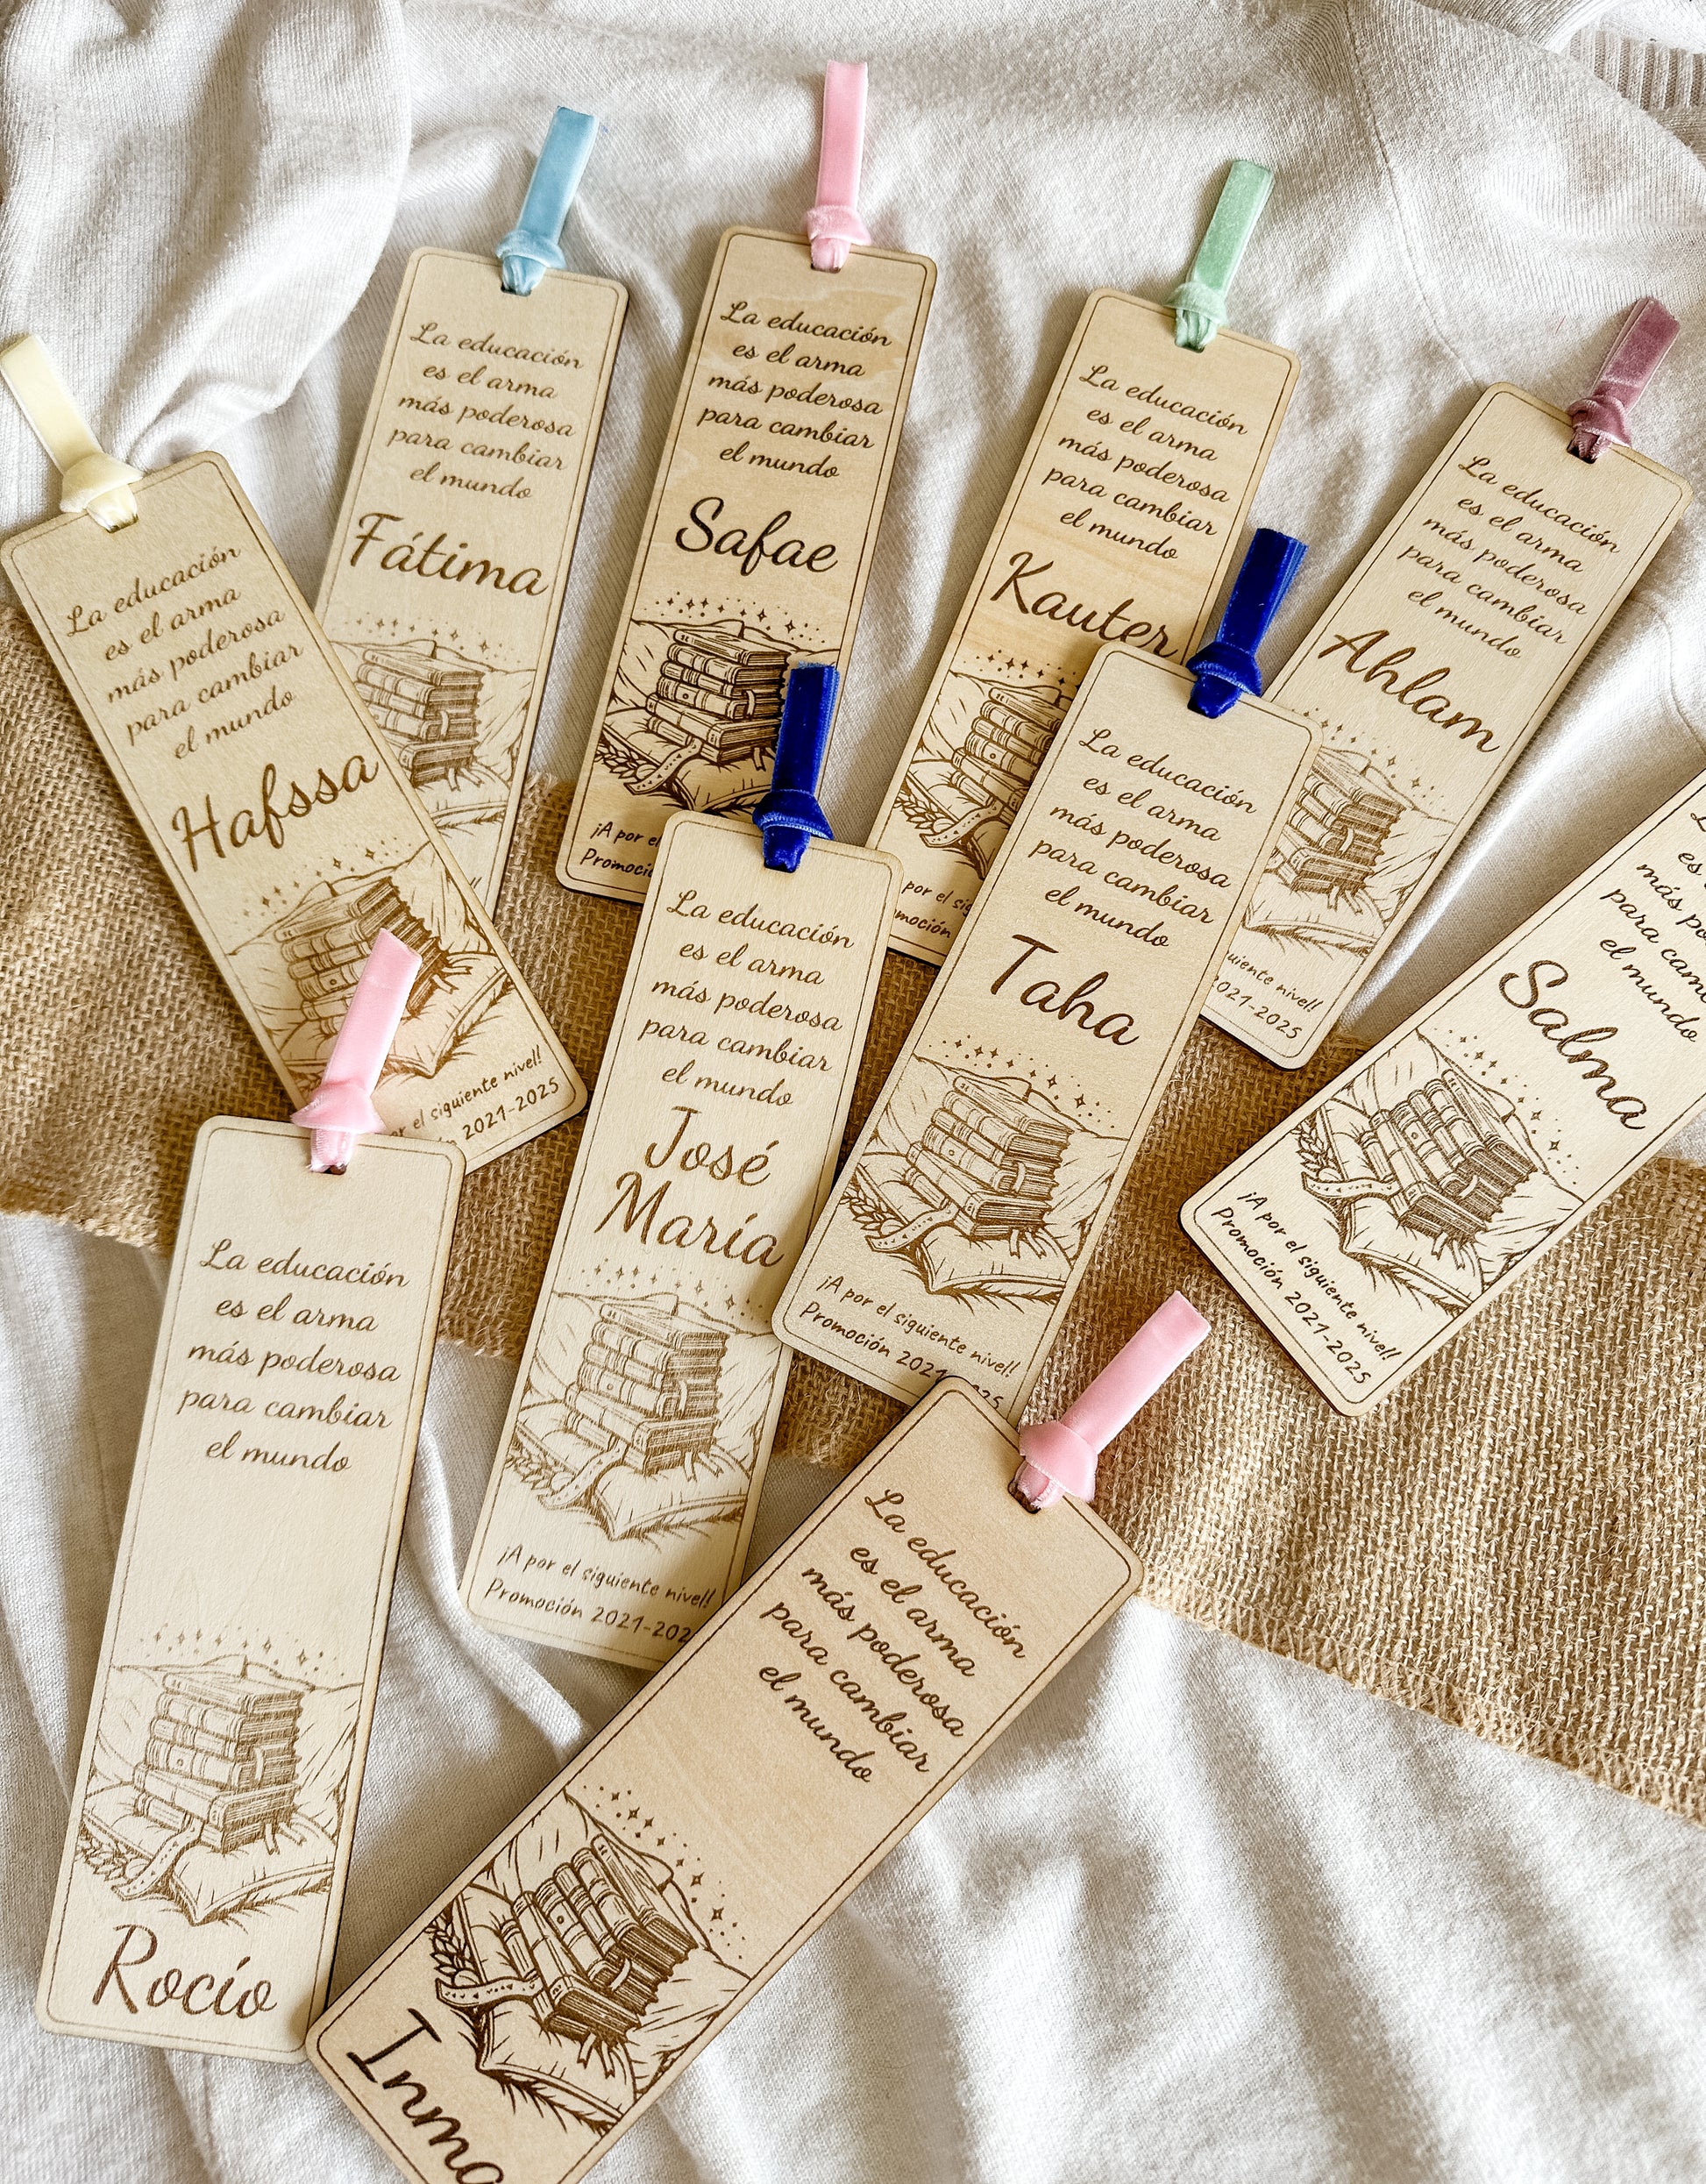 La educación
es el arma
más poderosa
para cambiar
el mundo
Hafssa
or el siguiente nivel!
2021-2025
La educación
es el arma
más poderosa
para cambiar
el mundo
Fátima
La educación
es el arma
más poderosa
para cambiar
el mundo
Safae
¡A por el
Promoció
La educación
es el arma
más poderosa
para cambiar
el mundo
Kauter
por el sig
moción
La educación
es el arma
más poderosa
para cambiar
el mundo
Ahlam
uiente nivel!
2021-2025
La educación
es el arma
más poderosa
para cambiar
el mundo
José
María
¡A por el siguiente nivel!
Promoción 2021-202
La educación
es el arma
más poderosa
para cambiar
el mundo
Taha
¡A por el siguiente nivel!
Promoción 2021 25
es
más po
para cam
el mundo
Salma
¡A por el siguiente nivel!
Promoción 2021-2025
La educación
es el arma
más poderosa
para cambiar
el mundo
Rocío
La educación
es el arma
más poderosa
para cambiar
el mundo
Inma